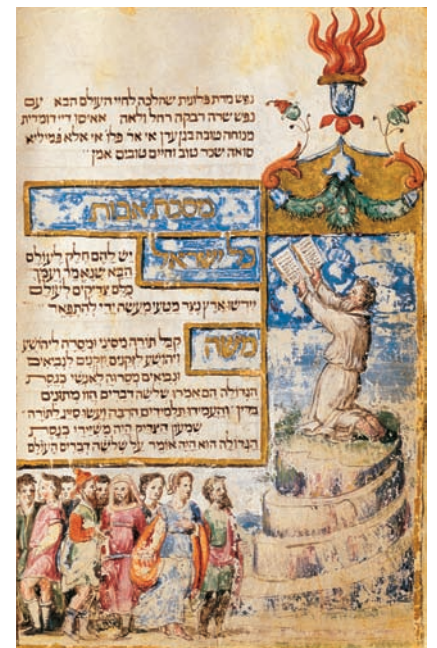 נפש מרת פלונית שהלכה לחיי העולם הבא עם
נפש שרה רבקה רחל ולאה דיי
מנוחה טובה בגן עדן אי אלא פמיליא
סואה שכר טוב וחיים טובים אמן
מסכת אבות
כל ישראל
יש להם חלק לעולם
הבא שנאמר ועמך
כלם צדיקים לעולם
יירשו ארץ נצר מטעי מעשה ידי להתפאר
משה
קבל תורה מסיני ומסרה ליהושע
ויהושע לזקנים וזקנים לנביאים
ונביאים מסרוה לאנשי כנסת
הגדולה הם אמרו שלשה דברים הוו מתונים
בדין והעמידו תלמידים הרבה ועשו סייג לתורה
שמעון הצדיק היה משיירי כנסת
הגדולה הוא היה אומר על שלשה דברים העולם